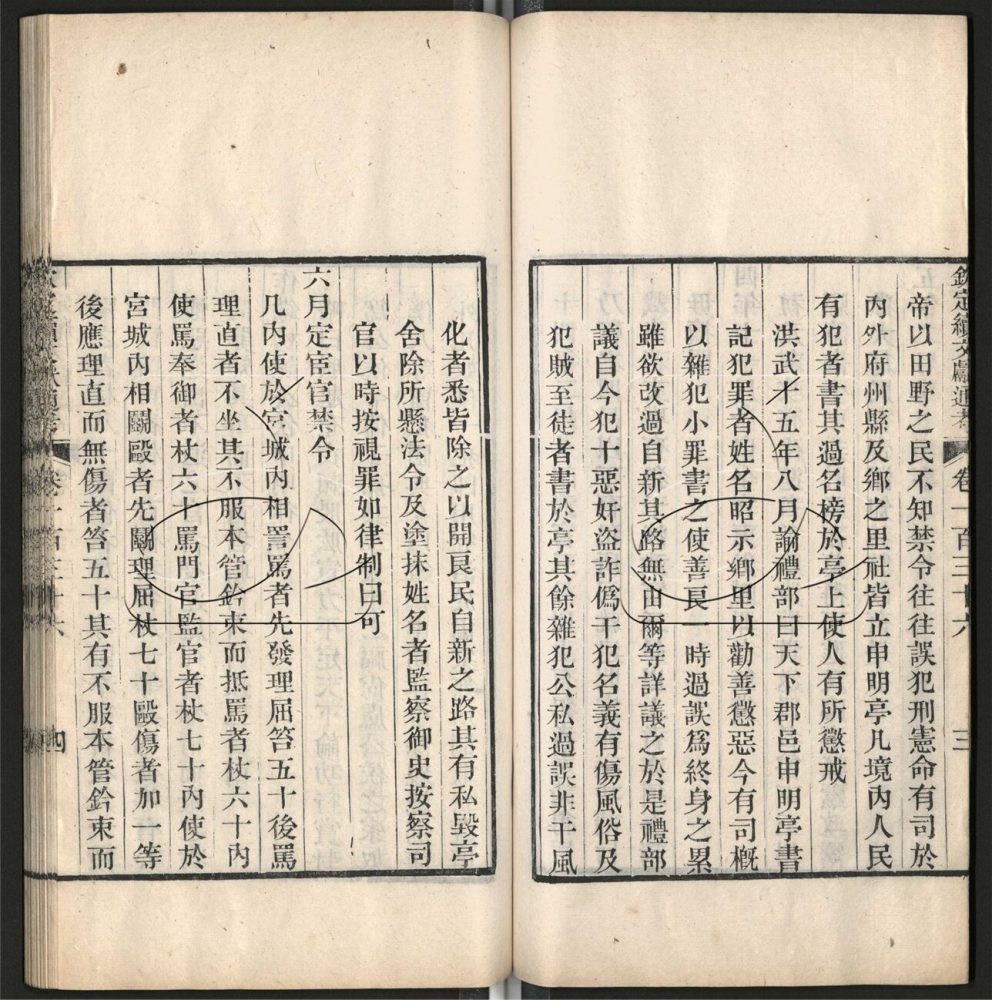 欽定續文獻通考　卷一百三十六　三
帝以田野之民不知禁令往往誤犯刑憲命有司於
內外府州縣及鄉之里社皆立申明亭凡境內人民
有犯者書其過名榜於亭上使人有所懲戒
洪武十五年八月諭禮部曰天下郡邑申明亭書
記犯罪者姓名昭示鄉里以勸善懲惡今有司槪
以雜犯小罪書之使善良一時過誤爲終身之累
雖欲改過自新其路無由爾等詳議之於是禮部
議自今犯十惡奸盜詐僞干犯名義有傷風俗及
犯賊至徒者書於亭其餘雜犯公私過誤非干風
化者悉皆除之以開良民自新之路其有私毀亭
舍除所懸法令及塗抹姓名者監察御史按察司
官以時按視罪如律制曰可
六月定宦官禁令
凡內使於宮城內相詈罵者先發理屈笞五十後罵
理直者不坐其不服本管鈐束而抵罵者杖六十內
使罵奉御者杖六十罵門官監官者杖七十內使於
宮城內相鬬毆者先鬬理屈杖七十毆傷者加一等
後應理直而無傷者笞五十其有不服本管鈐束而
卷一百三十六　四